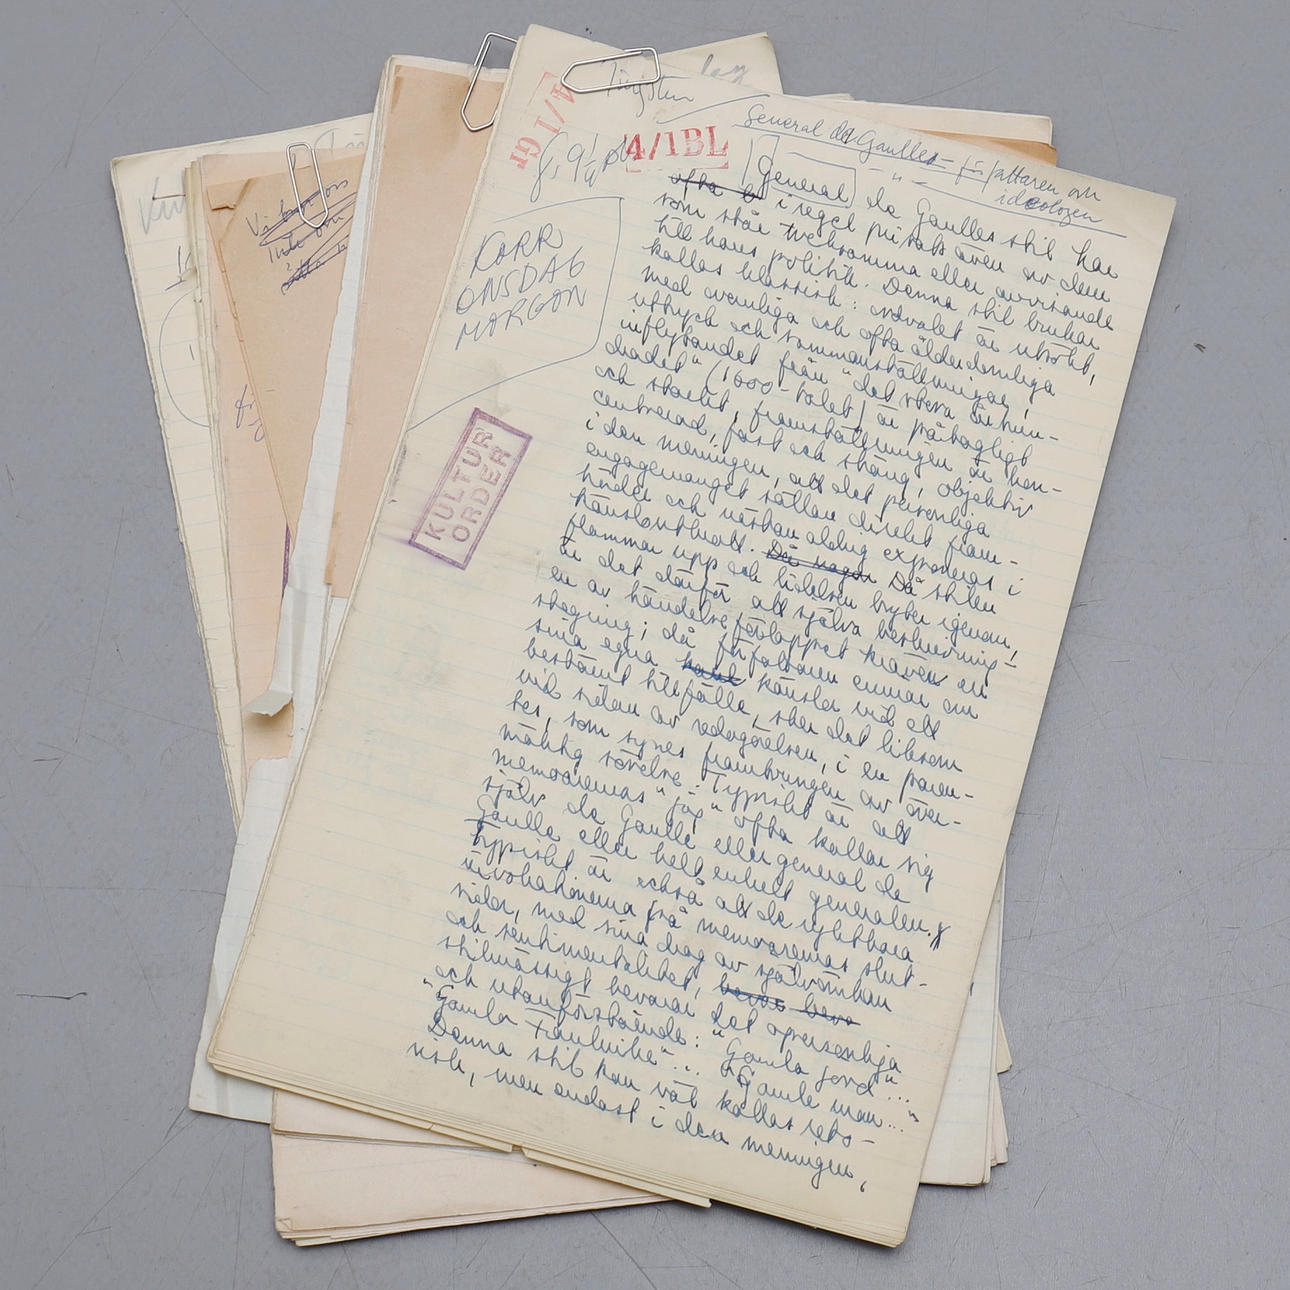 Tingsten
4/1 Gr
4/1BL
General de Gaulle – författaren om
ideologen
KORR
ONSDAG
MORGON
KULTUR
ORDER
ofta
General de Gaulles stil har
i regel prisats även av dem
som står tveksamma eller avvisande
till hans politik. Denna stil brukar
kallas klassisk: ordvalet är utsökt,
med ovanliga och ofta ålderdomliga
uttryck och sammanställningar,
inflytandet från "det stora århun-
dradet" (1600-talet) är påtagligt
och starkt, framställningen är kon-
centrerad, fast och sträng, objektiv
i den meningen, att det personliga
engagemanget sällan direkt fram-
träder och nästan aldrig exponeras i
känslouttryck. Då någon Då stilen
flammar upp och lidelsen bryter igenom,
är det därför att själva beskrivning-
en av händelseförloppet kräver en
stegring; då författaren erinrar om
sina egna känslor vid ett
bestämt tillfälle, sker det liksom
vid sidan av redogörelsen, i en paren-
tes, som synes framtvingen av över-
mäktig rörelse. Typiskt är att
memoarernas "jag" ofta kallar sig
själv de Gaulle eller general de
Gaulle eller helt enkelt generalen.
Typiskt är också att de ryktbara
invokationerna på memoarernas slut-
sidor, med sina drag av självömkan
och sentimentalitet,
stilmässigt bevarar det opersonliga
och utanförstående: "Gamla jord"...
"Gamla Frankrike"... "Gamle man..."
Denna stil kan väl kallas reto-
risk, men endast i den meningen,